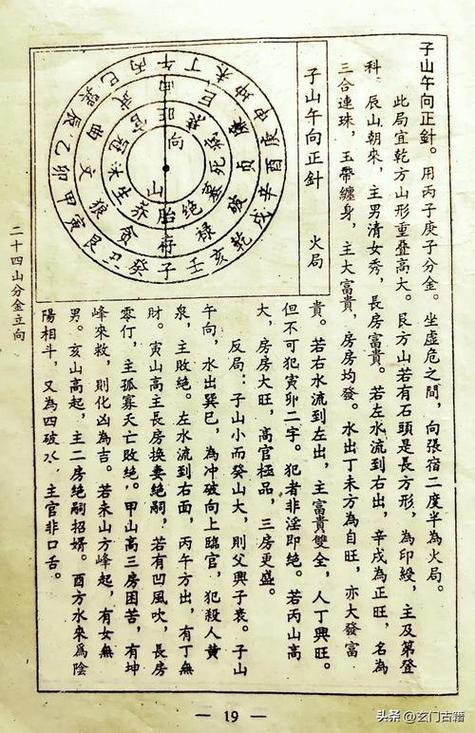 子山午向正針。用丙子庚子分金。坐虛危之間,向張宿二度半為火局。
此局宜乾方山形重疊高大。艮方山若有石頭是長方形,為印綬,主及第登
科。辰山朝來,主男清女秀,長房富貴。若左水流到右出,辛戌為正旺,名為
三合連珠,玉帶纏身,主大富貴,房房均發。水出丁未方為自旺,亦大發富
貴。若右水流到左出,主富貴雙全,人丁興旺。
但不可犯寅卯二字。犯者非淫即絕。若丙山高
大,房房大旺,高官極品,三房更盛。
反局:子山小而癸山大,則父興子衰。子山
午向,水出巽巳,為冲破向上臨官,犯殺人黃
泉,主敗絕。左水流到右面,丙午方出,有丁無
財。寅山高主長房換妻絕嗣,若有凹風吹,長房
零仃,主孤寡夭亡敗絕。甲山高三房困苦,有坤
峰來救,則化凶為吉。若未山方峰起,有女無
男。亥山高起,主二房絕嗣招婿。酉方水來為陰
陽相斗,又為四破水,主官非口舌。
子山午向正針 火局
午丁未坤申庚酉辛戌乾亥壬子癸丑艮寅甲卯乙辰巽巳丙
巨廉貞破祿貪狼文曲武
旺衰病死墓絕胎养生沐冠官
向
山
二十四山分金立向
— 19 —
头条 @玄门古籍